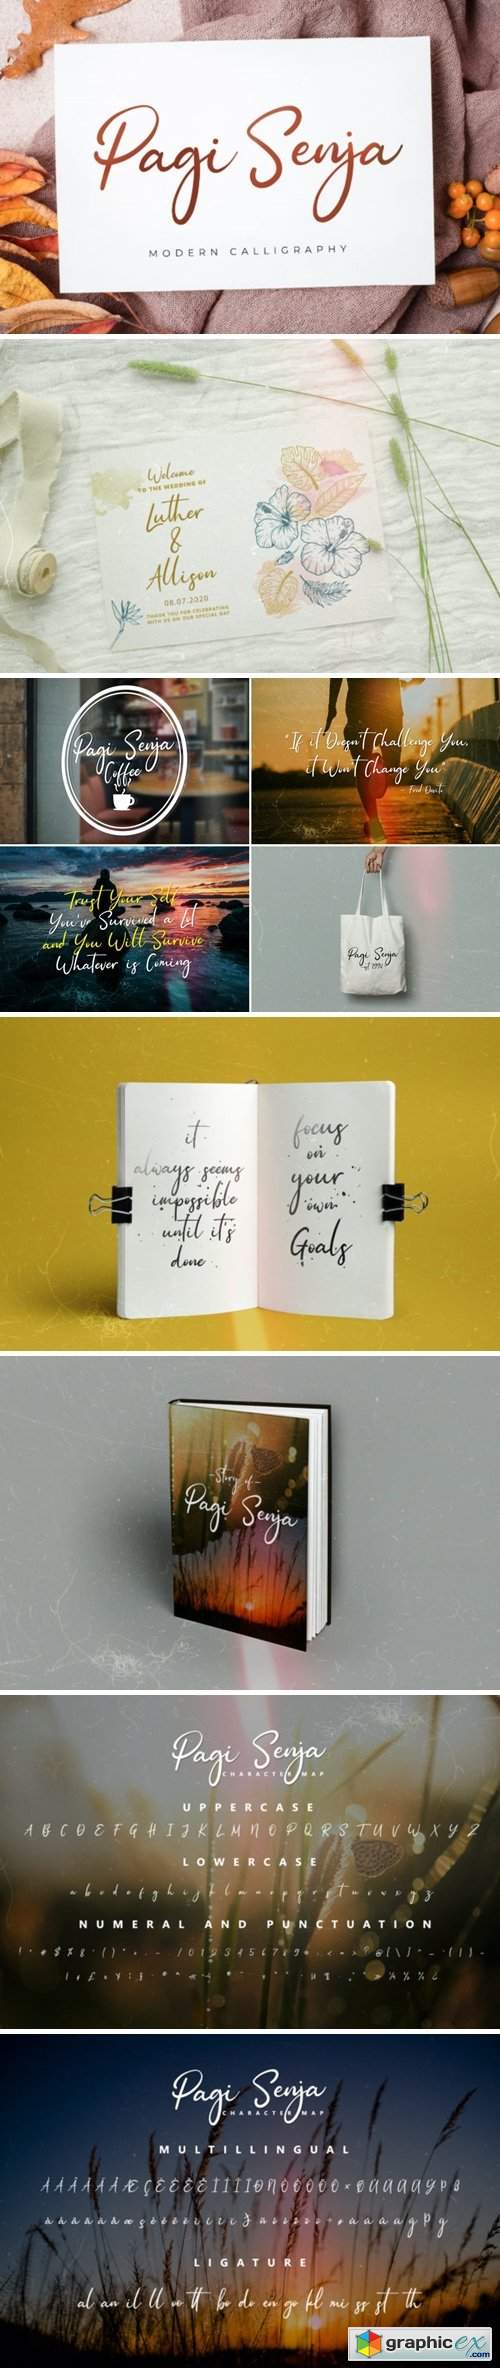 Pagi Senja
MODERN CALLIGRAPHY
Welcome
TO THE WEDDING OF
Luther
&
Allison
08.07.2020
THANK YOU FOR CELEBRATING
WITH US ON OUR SPECIAL DAY
Pagi Senja
Coffee
"If it Doesn't Challenge You,
it Won't Change You"
Trust Your Self
You've Survived a Lot
and You Will Survive
Whatever is Coming
Pagi Senja
est 1994
it
always seems
impossible
until it's
done
focus
on
your
own
Goals
-Story of-
Pagi Senja
Pagi Senja
CHARACTER MAP
UPPERCASE
A B C D E F G H I J K L M N O P Q R S T U V W X Y Z
LOWERCASE
a b c d e f g h i j k l m n o p q r s t u v w x y z
NUMERAL AND PUNCTUATION
Pagi Senja
CHARACTER MAP
MULTILLINGUAL
LIGATURE
al an il ll oo tt bo do en go kl mi ss st th
graphicex.com